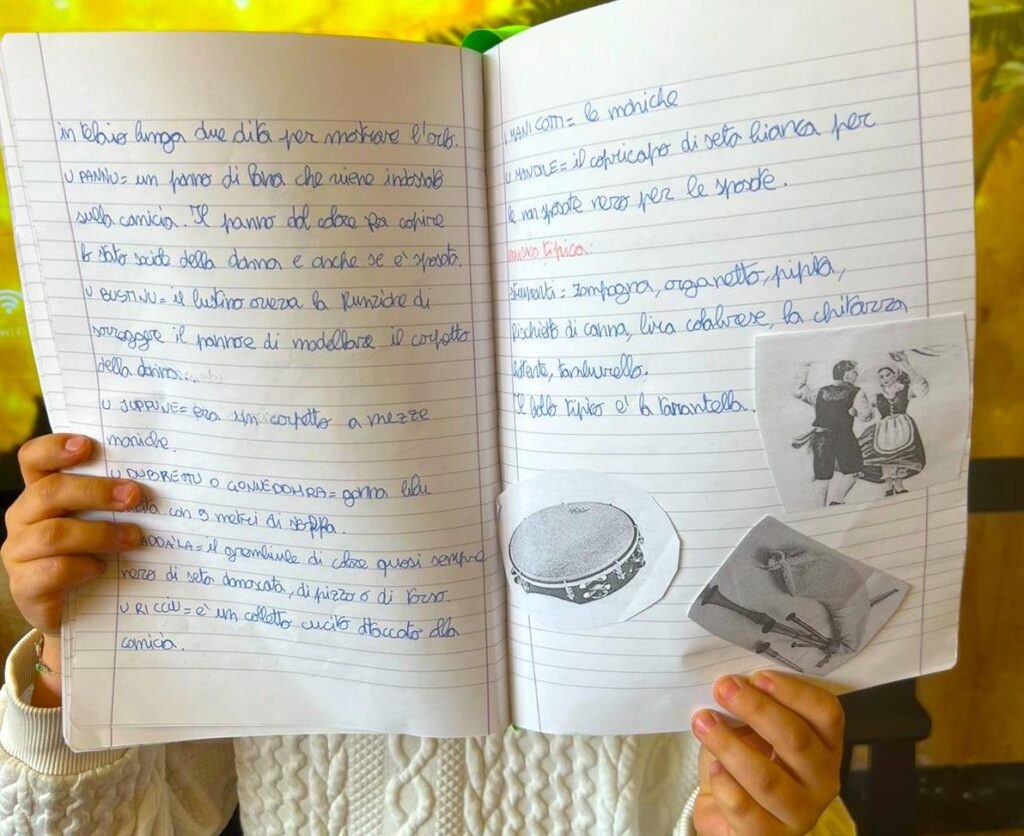 in telaio lunga due dita per mostrare l'orlo.
U PANNU= un panno di lana che viene indossato
sulla camicia. Il panno dal colore fa capire
lo stato sociale della donna e anche se e' sposata.
U BUSTINU= il bustino aveva la funzione di
sorreggere il pannore di modellare il corpetto
della donna...
U JUPPUNE= era un corpetto a mezze
maniche.
U DUBRETTU O GONNEDDHRA= gonna blu
con 9 metri di stoffa.
il grembiule di colore quasi sempre
nero di seta damascata, di pizzo o di
U RICCIU= è un colletto cucito attaccato alla
camicia.
MANICOTTI= le maniche
U MANDILE= il copricapo di seta bianca per
le non sposate nero per le sposate.
musica tipica:
strumenti= zampogna, organetto, pipita,
fischietto di canna, lira calabrese, la chitarra
battente, tamburello.
Il ballo tipico e' la tarantella.